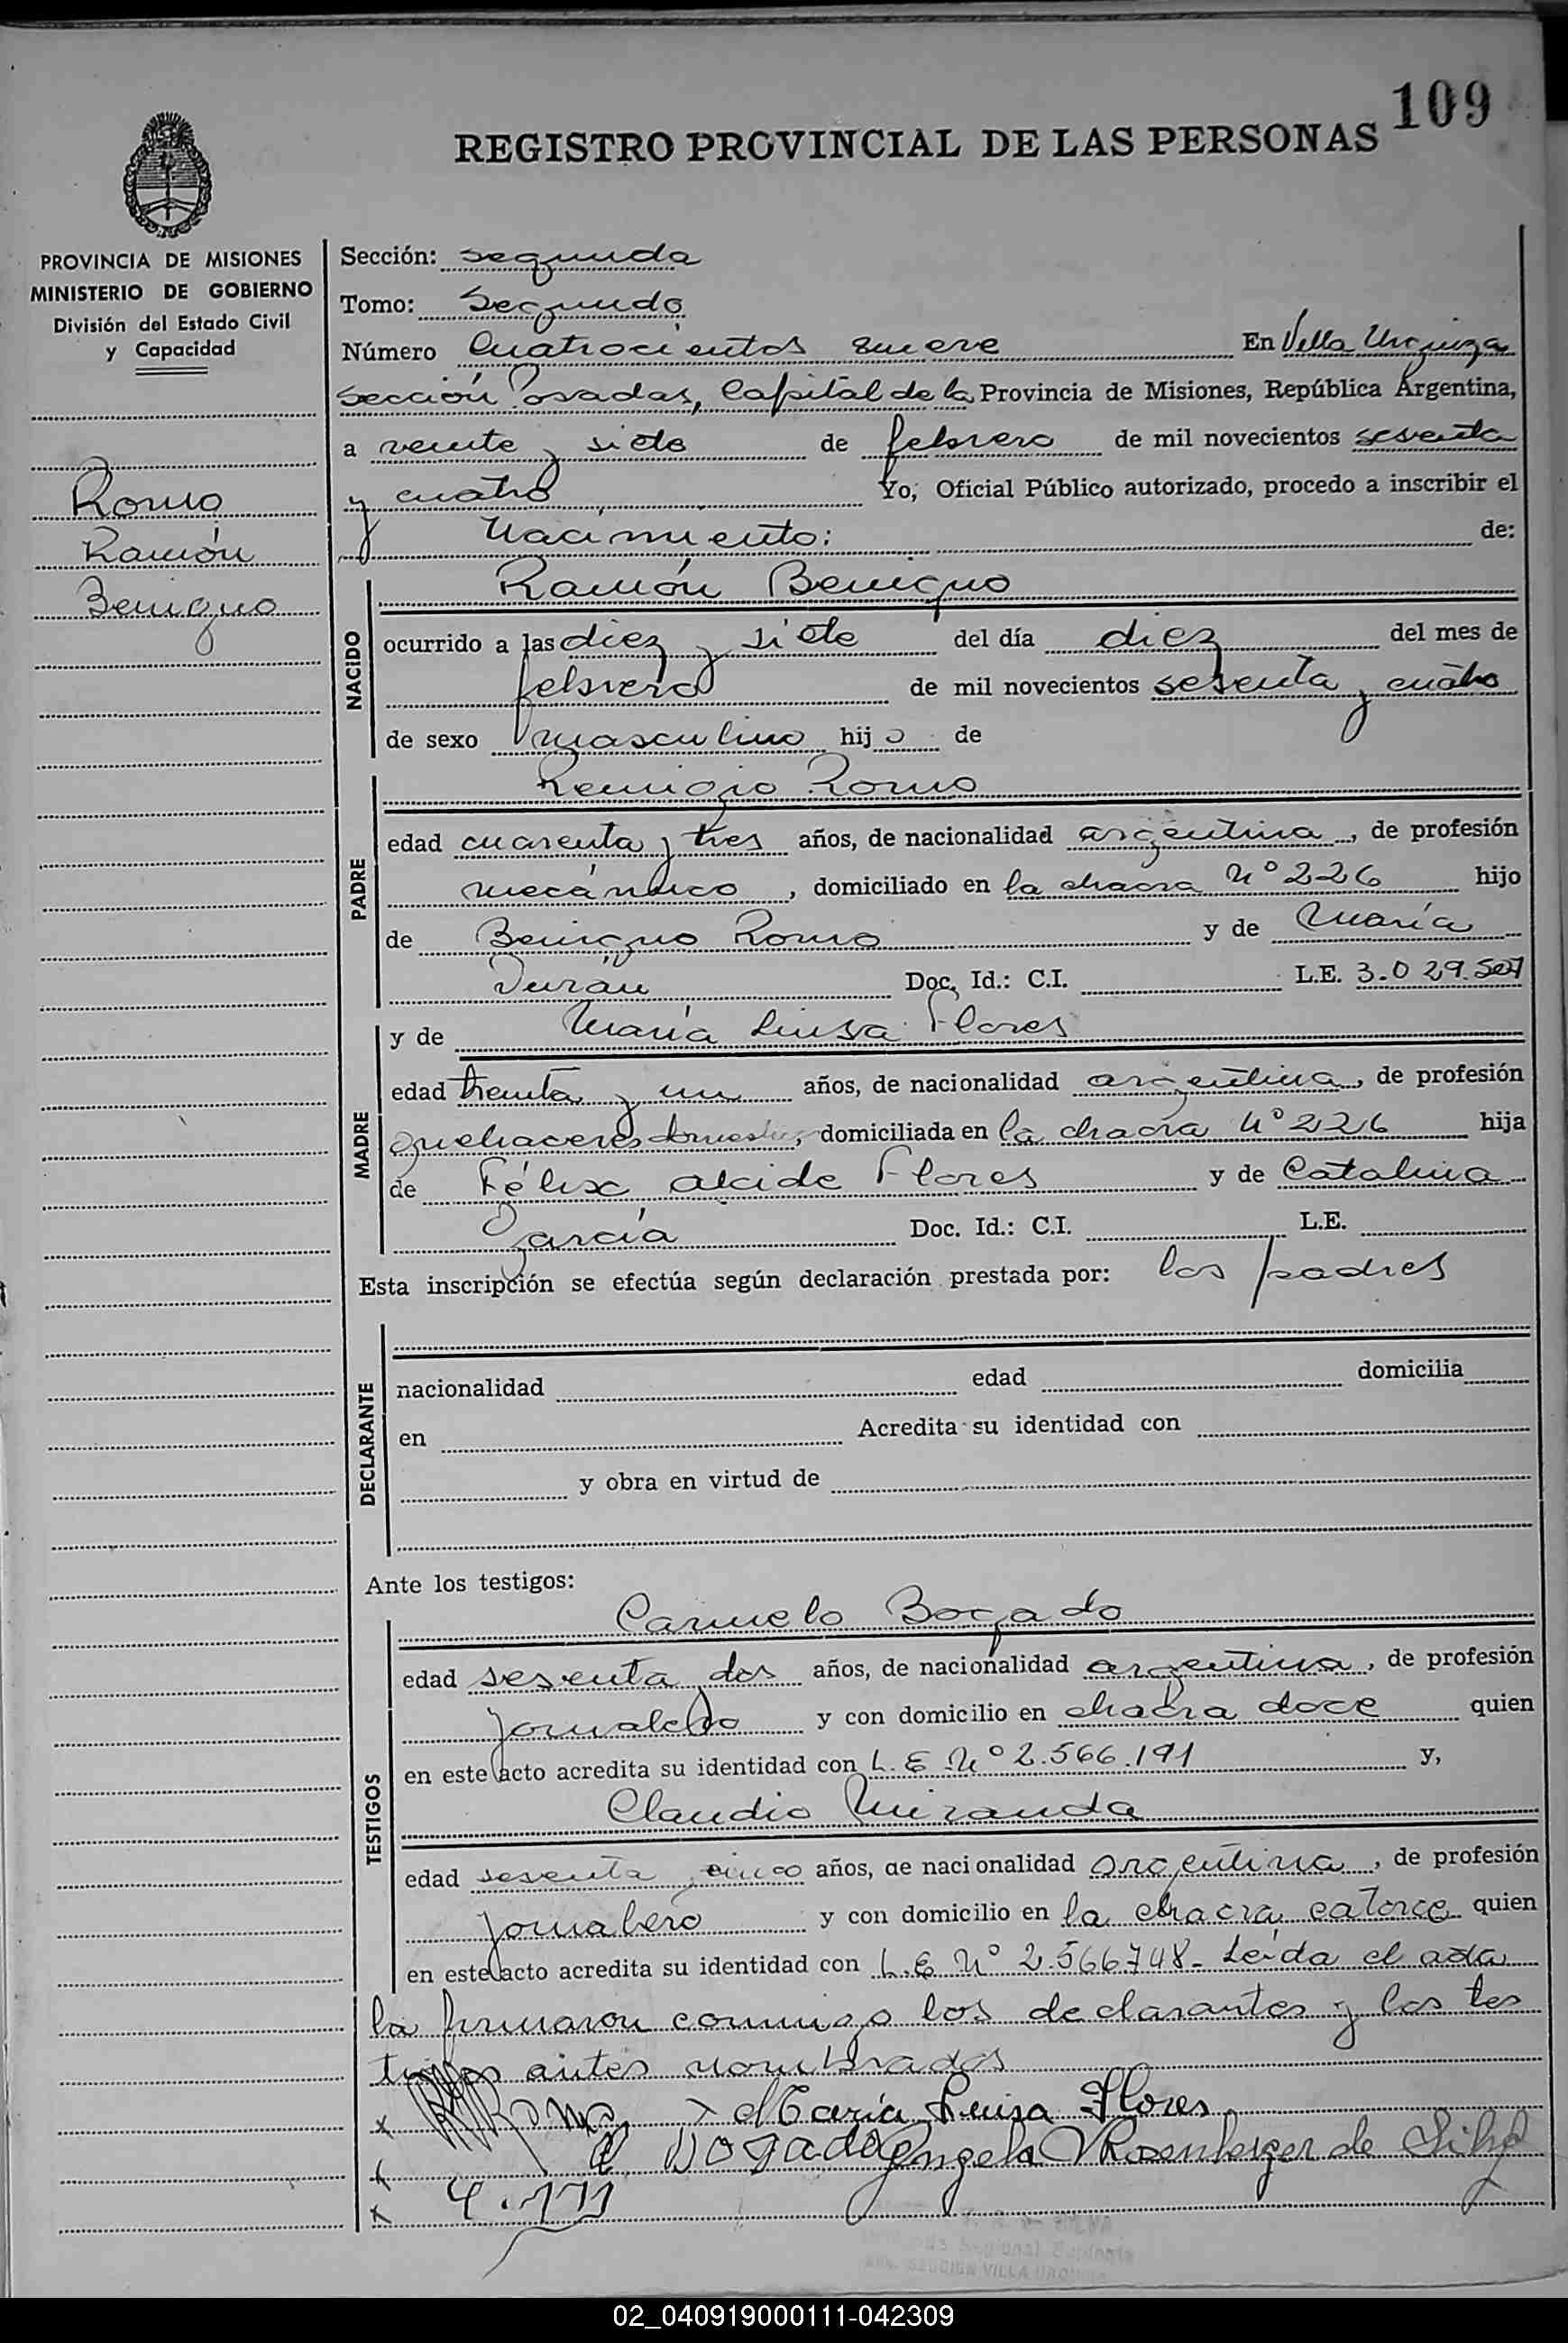 109
REGISTRO PROVINCIAL DE LAS PERSONAS
PROVINCIA DE MISIONES
MINISTERIO DE GOBIERNO
División del Estado Civil
y Capacidad
Romo
Ramón
Benigno
Sección: segunda
Tomo: Segundo
Número Cuatrocientos nueve En Villa Urquiza
Sección Posadas, Capital de la Provincia de Misiones, República Argentina,
a veinte y siete de febrero de mil novecientos sesenta
y cuatro Yo, Oficial Público autorizado, procedo a inscribir el
Nacimiento: de:
NACIDO
Ramón Benigno
ocurrido a las diez y siete del día diez del mes de
febrero de mil novecientos sesenta y cuatro
de sexo masculino hijo de
PADRE
Remigio Romo
edad cuarenta y tres años, de nacionalidad argentina, de profesión
mecánico, domiciliado en la chacra Nº 226 hijo
de Benigno Romo y de María
Durán Doc. Id.: C.I. L.E. 3.029.507
MADRE
y de María Luisa Flores
edad treinta y un años, de nacionalidad argentina, de profesión
quehaceres domésticos, domiciliada en la chacra Nº 226 hija
de Félix alcide Flores y de Catalina
García Doc. Id.: C.I. L.E.
Esta inscripción se efectúa según declaración prestada por: los padres
DECLARANTE
nacionalidad edad domicilia
en Acredita su identidad con
y obra en virtud de
Ante los testigos:
TESTIGOS
Carmelo Bogado
edad sesenta y dos años, de nacionalidad argentina, de profesión
jornalero y con domicilio en chacra doce quien
en este acto acredita su identidad con L.E Nº 2.566.191 y,
Claudio Miranda
edad sesenta y cinco años, de nacionalidad argentina, de profesión
jornalero y con domicilio en la chacra catorce quien
en este acto acredita su identidad con L.E Nº 2.566748- Leída el acta
la firmaron conmigo los declarantes y los tes
tigos antes nombrados
x Romo x María Luisa Flores
x C Bogado Angela Rosenberger de Silva
x
SECCION VILLA
02_040919000111-042309